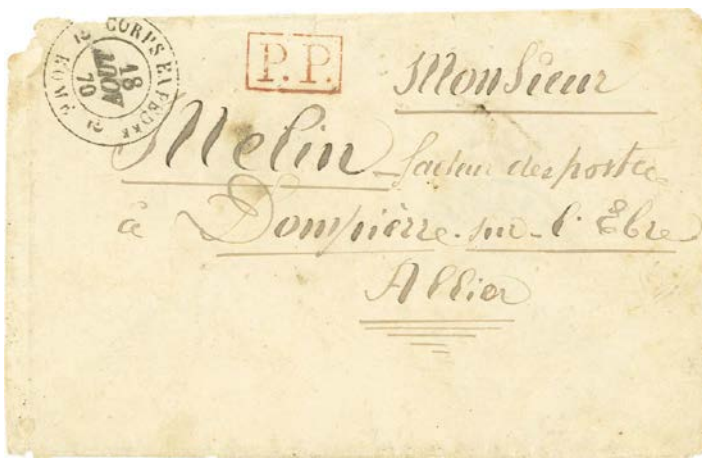 CORPS EXPED. ROME 2e 2e
18
AOUT
70
P.P.
Monsieur
Melin facteur des postes
à Dompierre-sur-l'Ebre
Allier